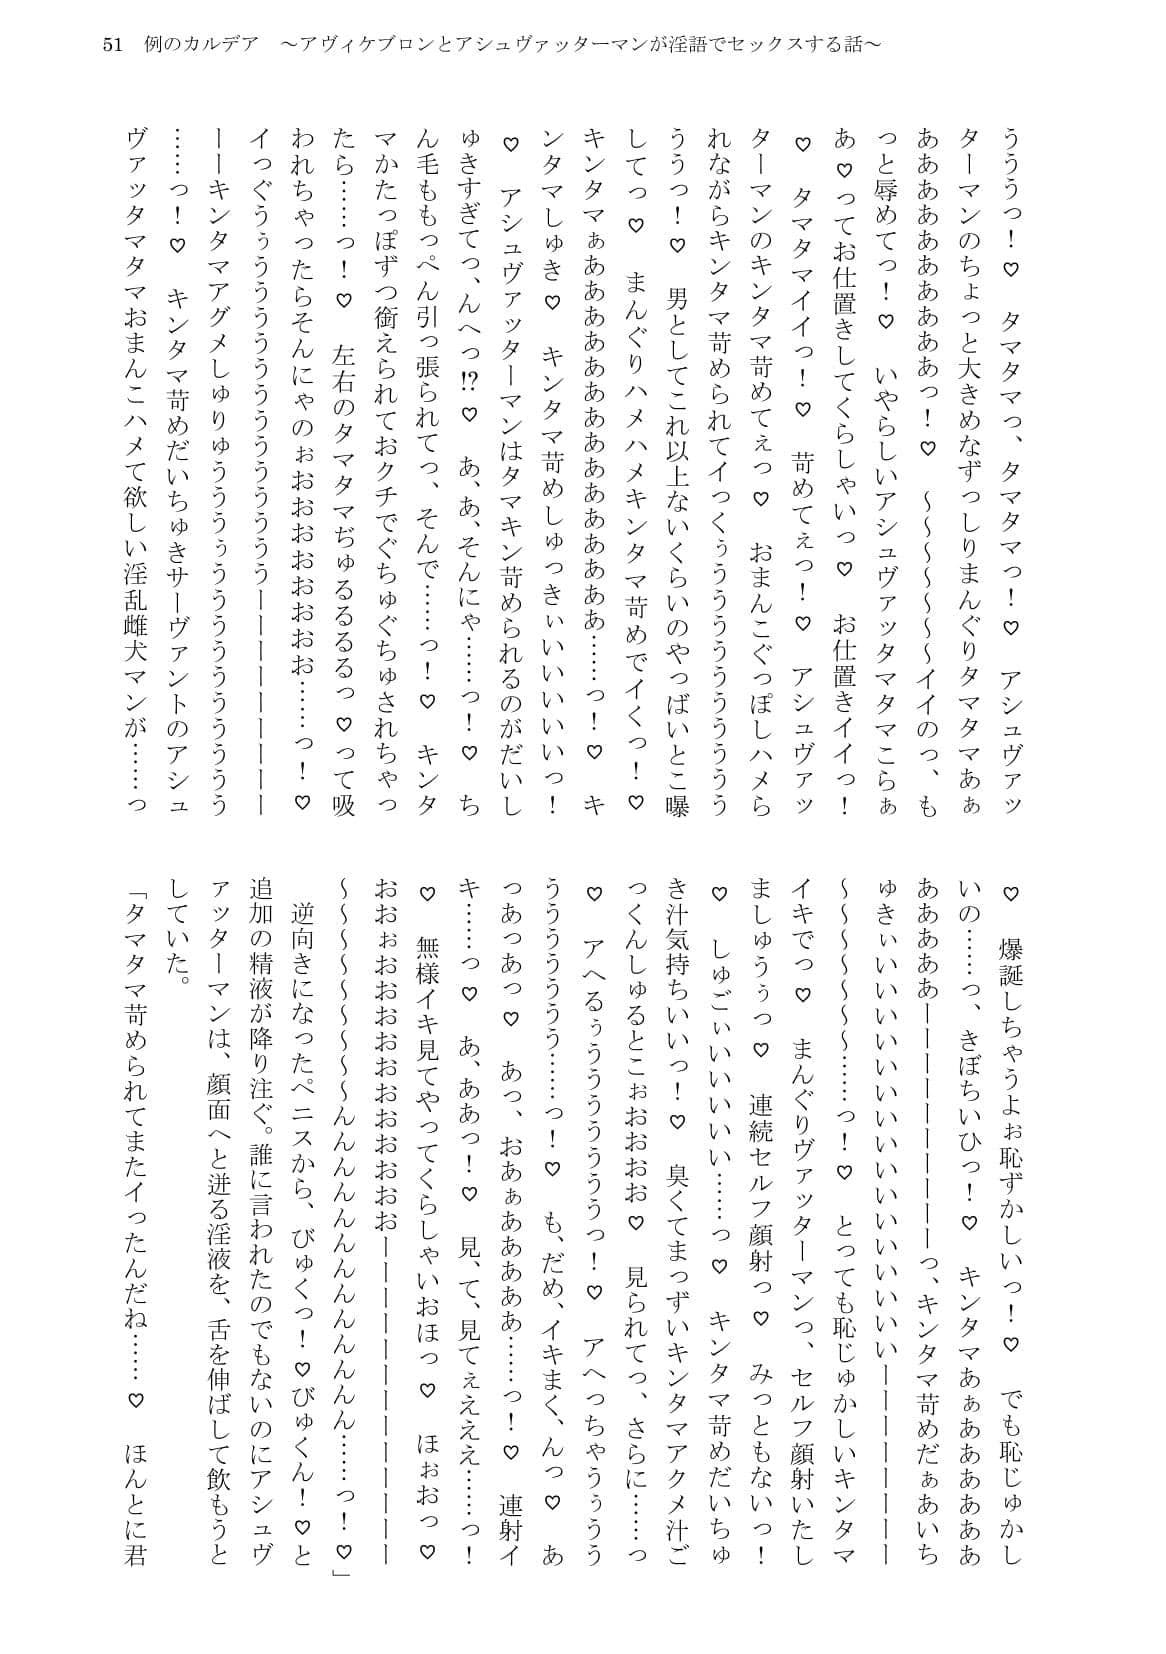 51　例のカルデア　～アヴィケブロンとアシュヴァッターマンが淫語でセックスする話～
うううっ！♡　タマタマっ、タマタマっ！♡　アシュヴァッ
ターマンのちょっと大きめなずっしりまんぐりタマタマあぁ
あああああああああああっ！♡　～～～～～～イイのっ、も
っと辱めてっ！♡　いやらしいアシュヴァッタマタマこらぁ
あ♡ってお仕置きしてくらしゃいっ♡　お仕置きイイっ！
♡　タマタマイイっ！♡　苛めてぇっ！♡　アシュヴァッ
ターマンのキンタマ苛めてぇっ♡　おまんこぐっぽしハメら
れながらキンタマ苛められてイっくぅうううううううううう
ううっ！♡　男としてこれ以上ないくらいのやっばいとこ曝
してっ♡　まんぐりハメハメキンタマ苛めでイくっ！♡
キンタマぁああああああああああああああああ……っ！♡　キ
ンタマしゅき♡　キンタマ苛めしゅっきぃいいいいいっ！
♡　アシュヴァッターマンはタマキン苛められるのがだいし
ゅきすぎてっ、んへっ⁉♡　あ、あ、そんにゃ……っ！♡　ち
ん毛ももっぺん引っ張られてっ、そんで……っ！♡　キンタ
マかたっぽずつ銜えられておクチでぐちゅぐちゅされちゃっ
たら……っ！♡　左右のタマタマぢゅるるるるっ♡って吸
われちゃったらそんにゃのぉおおおおおおおお……っ！♡
イっぐうぅううううううううううううう――――――――
――キンタマアグメしゅりゅううううぅうううううううううう
……っ！♡　キンタマ苛めだいちゅきサーヴァントのアシュ
ヴァッタマタマおまんこハメて欲しい淫乱雌犬マンが……っ
♡　爆誕しちゃうよぉ恥ずかしいっ！♡　でも恥じゅかし
いの……っ、きぼちいひっ！♡　キンタマあぁああああああ
あああああ――――――――――っ、キンタマ苛めだぁあいち
ゅきぃいいいいいいいいいいいいいいいいい――――――――
～～～～～～～……っ！♡　とっても恥じゅかしいキンタマ
イキでっ♡　まんぐりヴァッターマンっ、セルフ顔射いたし
ましゅうぅっ♡　連続セルフ顔射っ♡　みっともないっ！
♡　しゅごぃいいいいい……っ♡　キンタマ苛めだいちゅ
き汁気持ちいいっ！♡　臭くてまっずいキンタマアクメ汁ご
っくんしゅるとこぉおおおお♡　見られてっ、さらに……っ
♡　アへるぅううううううううっ！♡　アへっちゃうぅうう
ううううううう……っ！♡　も、だめ、イキまく、んっ♡　あ
っあっあっ♡　あっ、おあぁああああああ……っ！♡　連射イ
キ……っ♡　あ、ああっ！♡　見、て、見てぇえええ……っ！
♡　無様イキ見てやってくらしゃいおほっ♡　ほぉおっ♡
おおぉおおおおおおおおおおおお――――――――――――
～～～～～～～～～んんんんんんんんんんんんん……っ！♡」
　逆向きになったペニスから、びゅくっ！♡びゅくん！♡と
追加の精液が降り注ぐ。誰に言われたのでもないのにアシュヴ
ァッターマンは、顔面へと迸る淫液を、舌を伸ばして飲もうと
していた。
「タマタマ苛められてまたイったんだね……♡　ほんとに君